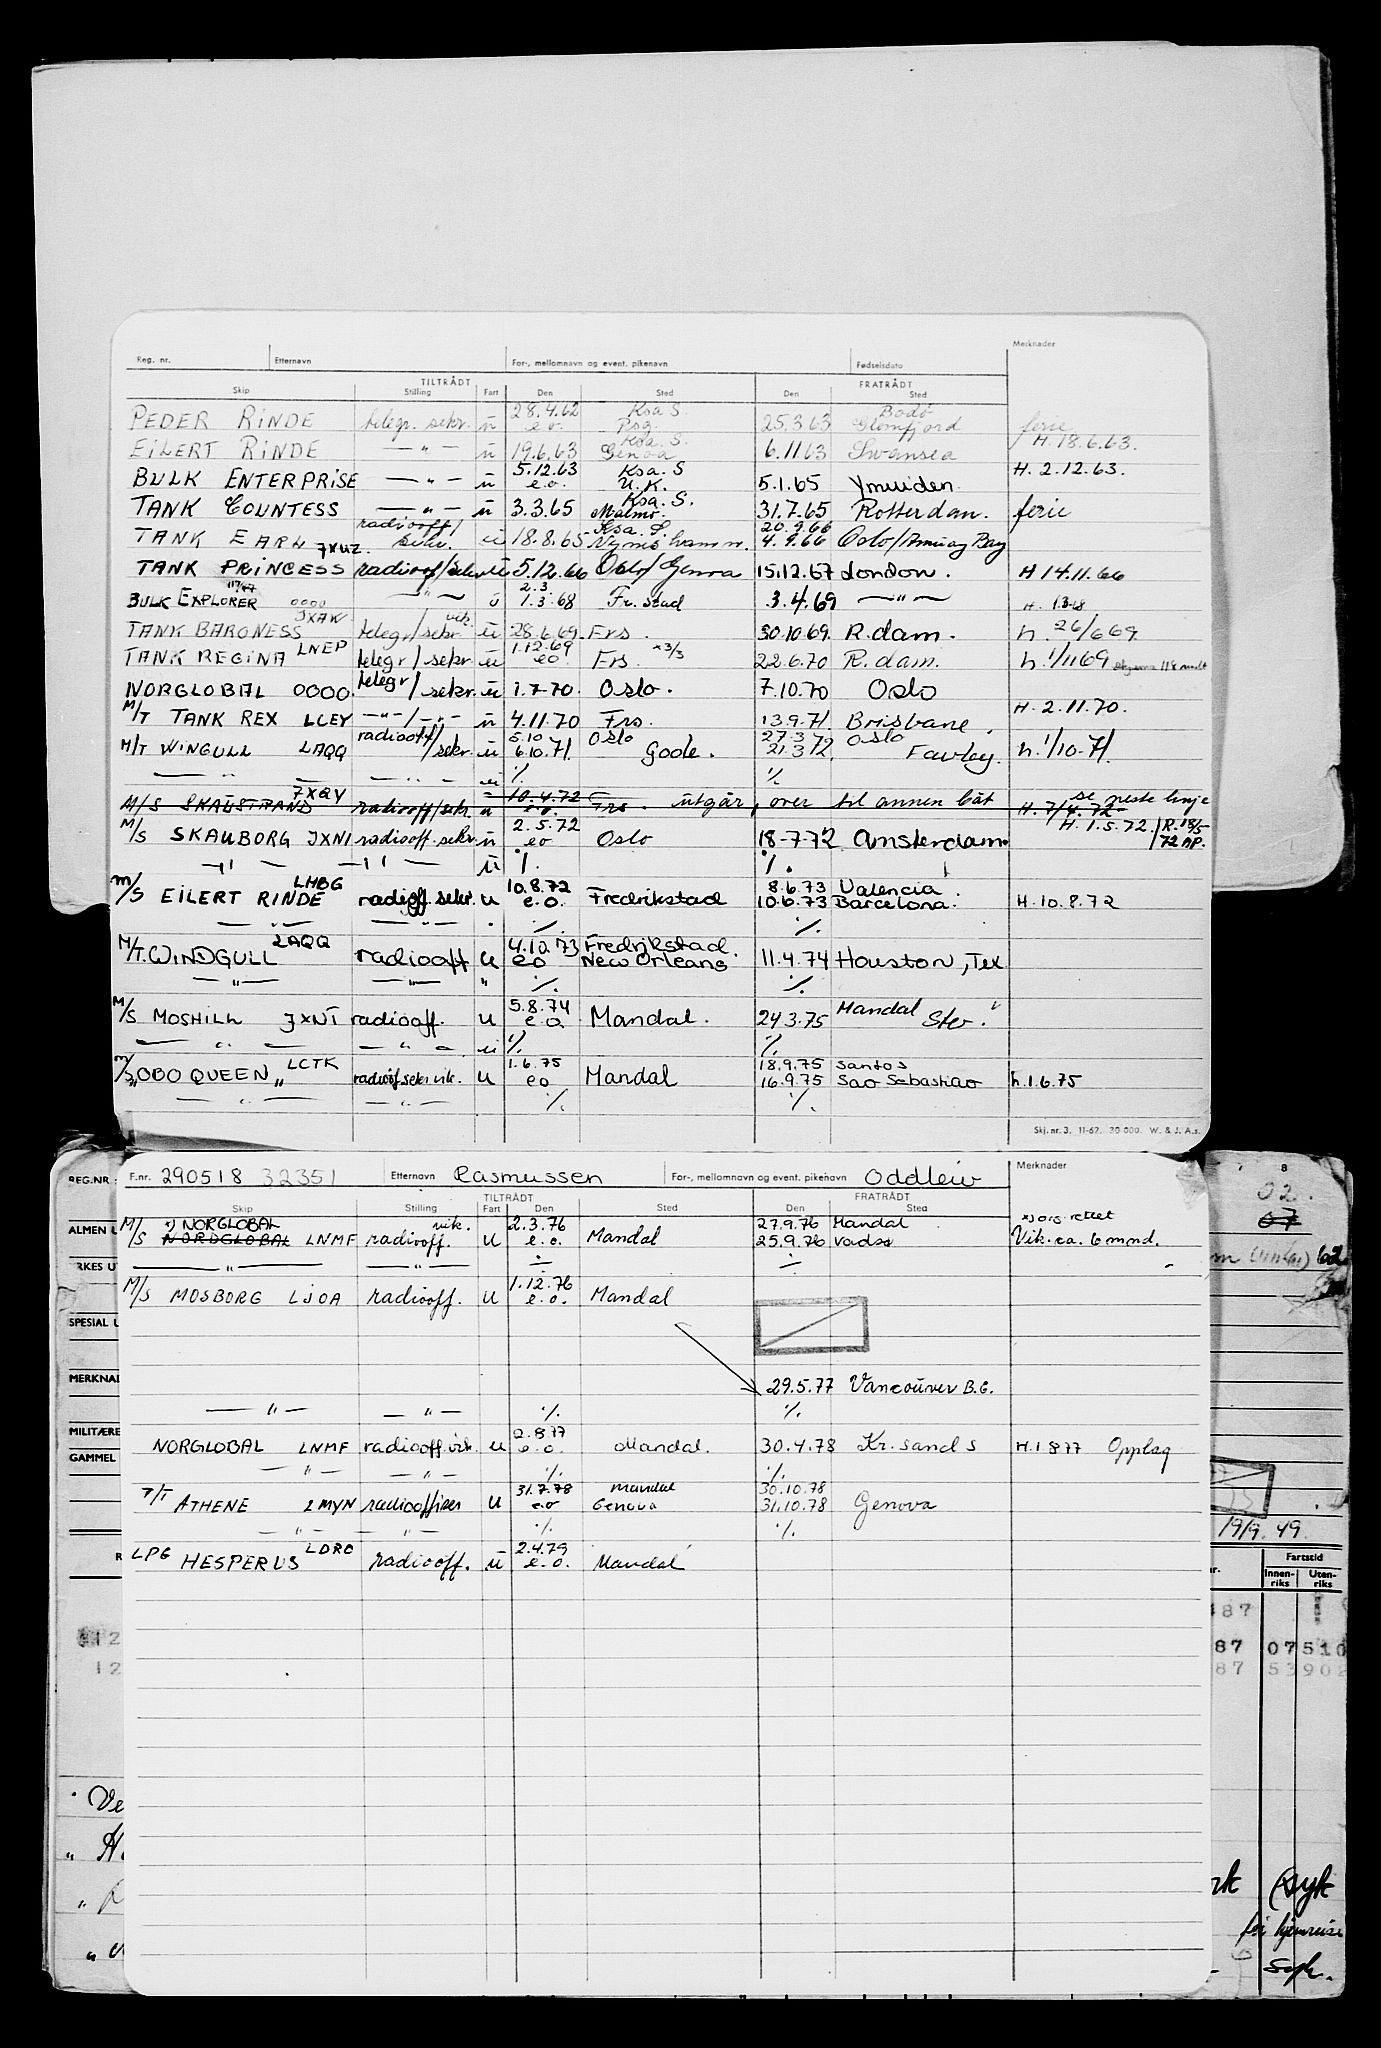 Reg. nr. Etternavn For-, mellomnavn og event. pikenavn Fødselsdato Merknader
TILTRÅDT FRATRÅDT
Skip Stilling Fart Den Sted Den Sted
28.4.62 Ksa S. Bodø
PEDER RINDE telegr. sekr. u e.o. Psg. 25.3.63 Glomfjord ferie
Ksa. S. H. 18.6.63.
EILERT RINDE — " — u 19.6.63 Genoa 6.11.63 Swansea
5.12.63 Ksa. S H. 2.12.63.
BULK ENTERPRISE — " — u e.o. U.K. 5.1.65 Ymuiden
Ksa. S.
TANK COUNTESS — " — u 3.3.65 Malmø. 31.7.65 Rotterdam. ferie
radiooff/ Ksa. S. 20.9.66
TANK EARL 7XUZ. sekr. u 18.8.65 Nynäshamn. 4.9.66 Oslo/Amuay Bay
TANK PRINCESS radioof/sekr u 5.12.66 Oslo/Genova 15.12.67 London. H 14.11.66
2.3.
BULK EXPLORER 0000 — " — u 1.3.68 Fr. stad 3.4.69 — " — H. 1.3.68
JXAK vik.
TANK BARONESS telegr/sekr. u 28.6.69. Frs. 30.10.69. R.dam. h. 26/6 69
1.12.69 x3/3
TANK REGINA LNEP telegr/sekr. u eo Frs. 22.6.70 R.dam. h. 1/11 69
NORGLOBAL 0000. telegr/sekr. u 1.7.70. Oslo. 7.10.70 Oslo
H. 2.11.70.
M/T TANK REX LCEY — " — / — " — u 4.11.70 Frs. 13.9.71 Brisbane.
radiooff/ 5.10 Oslo 27.3 Oslo
M/T WINGULL LAQQ sekr. u 6.10.71. Goole. 21.3 72. Fawley. h. 1/10-71.
— " — — " — u ./. ./.
7XQY 10.4.72 se neste linje
M/S SKAUSTRAND radiooff/sekr. u e.o. Frs. utgår, over til annen båt H. 7/4.72
2.5.72 H. 1.5.72. /R.18/5
M/S SKAUBORG JXNI radiooff. sekr. u eo Oslo 18-7-72 Amsterdam. 72 AP.
— " — — " — u ./. ./.
LHBG 10.8.72 8.6.73 Valencia
M/S EILERT RINDE radiooff. sekr. u e.o. Fredrikstad 10.6.73 Barcelona. H. 10.8.72
— " — — " — . ./. ./.
LAQQ 4.10.73 Fredrikstad.
M/T. WINDGULL radiooff u eo New Orleans 11.4.74 Houston, Tex
— " — — " — " ./. ./.
5.8.74 Mandal
M/S MOSHILL JXNT radiooff. u e.o. Mandal. 24.3.75 Stv.
— " — — " — u ./. ./.
LCTK 1.6.75 18.9.75 Santos
M/S "OBO QUEEN" radiooff sekr vik. u eo Mandal 16.9.75 Sao Sebastiao h.1.6.75
— " — — " — ./. ./.
Skj. nr. 3. 11-62. 30 000. W. & J. A.s.
F.nr. 290518 32351 Etternavn Rasmussen For-, mellomnavn og event. pikenavn Oddleiv Merknader
TILTRÅDT FRATRÅDT
Skip Stilling Fart Den Sted Den Sted
x) NORGLOBAL vik. 2.3.76 27.9.76 Mandal x) ors. rettet
M/S NORDGLOBAL LNMF radiooff. u e.o. Mandal 25.9.76 Vadsø Vik. ca. 6 mnd.
— " — — " — ./. ./.
1.12.76
M/S MOSBORG LJOA radiooff. u e.o. Mandal
29.5.77 Vancouver B.C.
— " — — " — ./. ./.
2.8.77
NORGLOBAL LNMF radiooff. vik. u e.o. Mandal. 30.4.78 Kr.sand S H.1 8 77 Opplag
— " — — " — ./. ./.
31.7.78 Mandal 30.10.78
T/T ATHENE LMYN radiooffiser u eo Genova 31.10.78 Genova
— " — — " — ./. ./.
LDRC 2.4.79
LPG HESPERUS radiooff. u e.o. Mandal
REG.NR
ALMEN
SPESIAL
MERKNAD
MILITÆRE
GAMMEL
8
02.
07
62
19/9.49.
Fartstid
Innen-riks Uten-riks
487
87 07510
87 53902
syk
for hjemreise
syk.